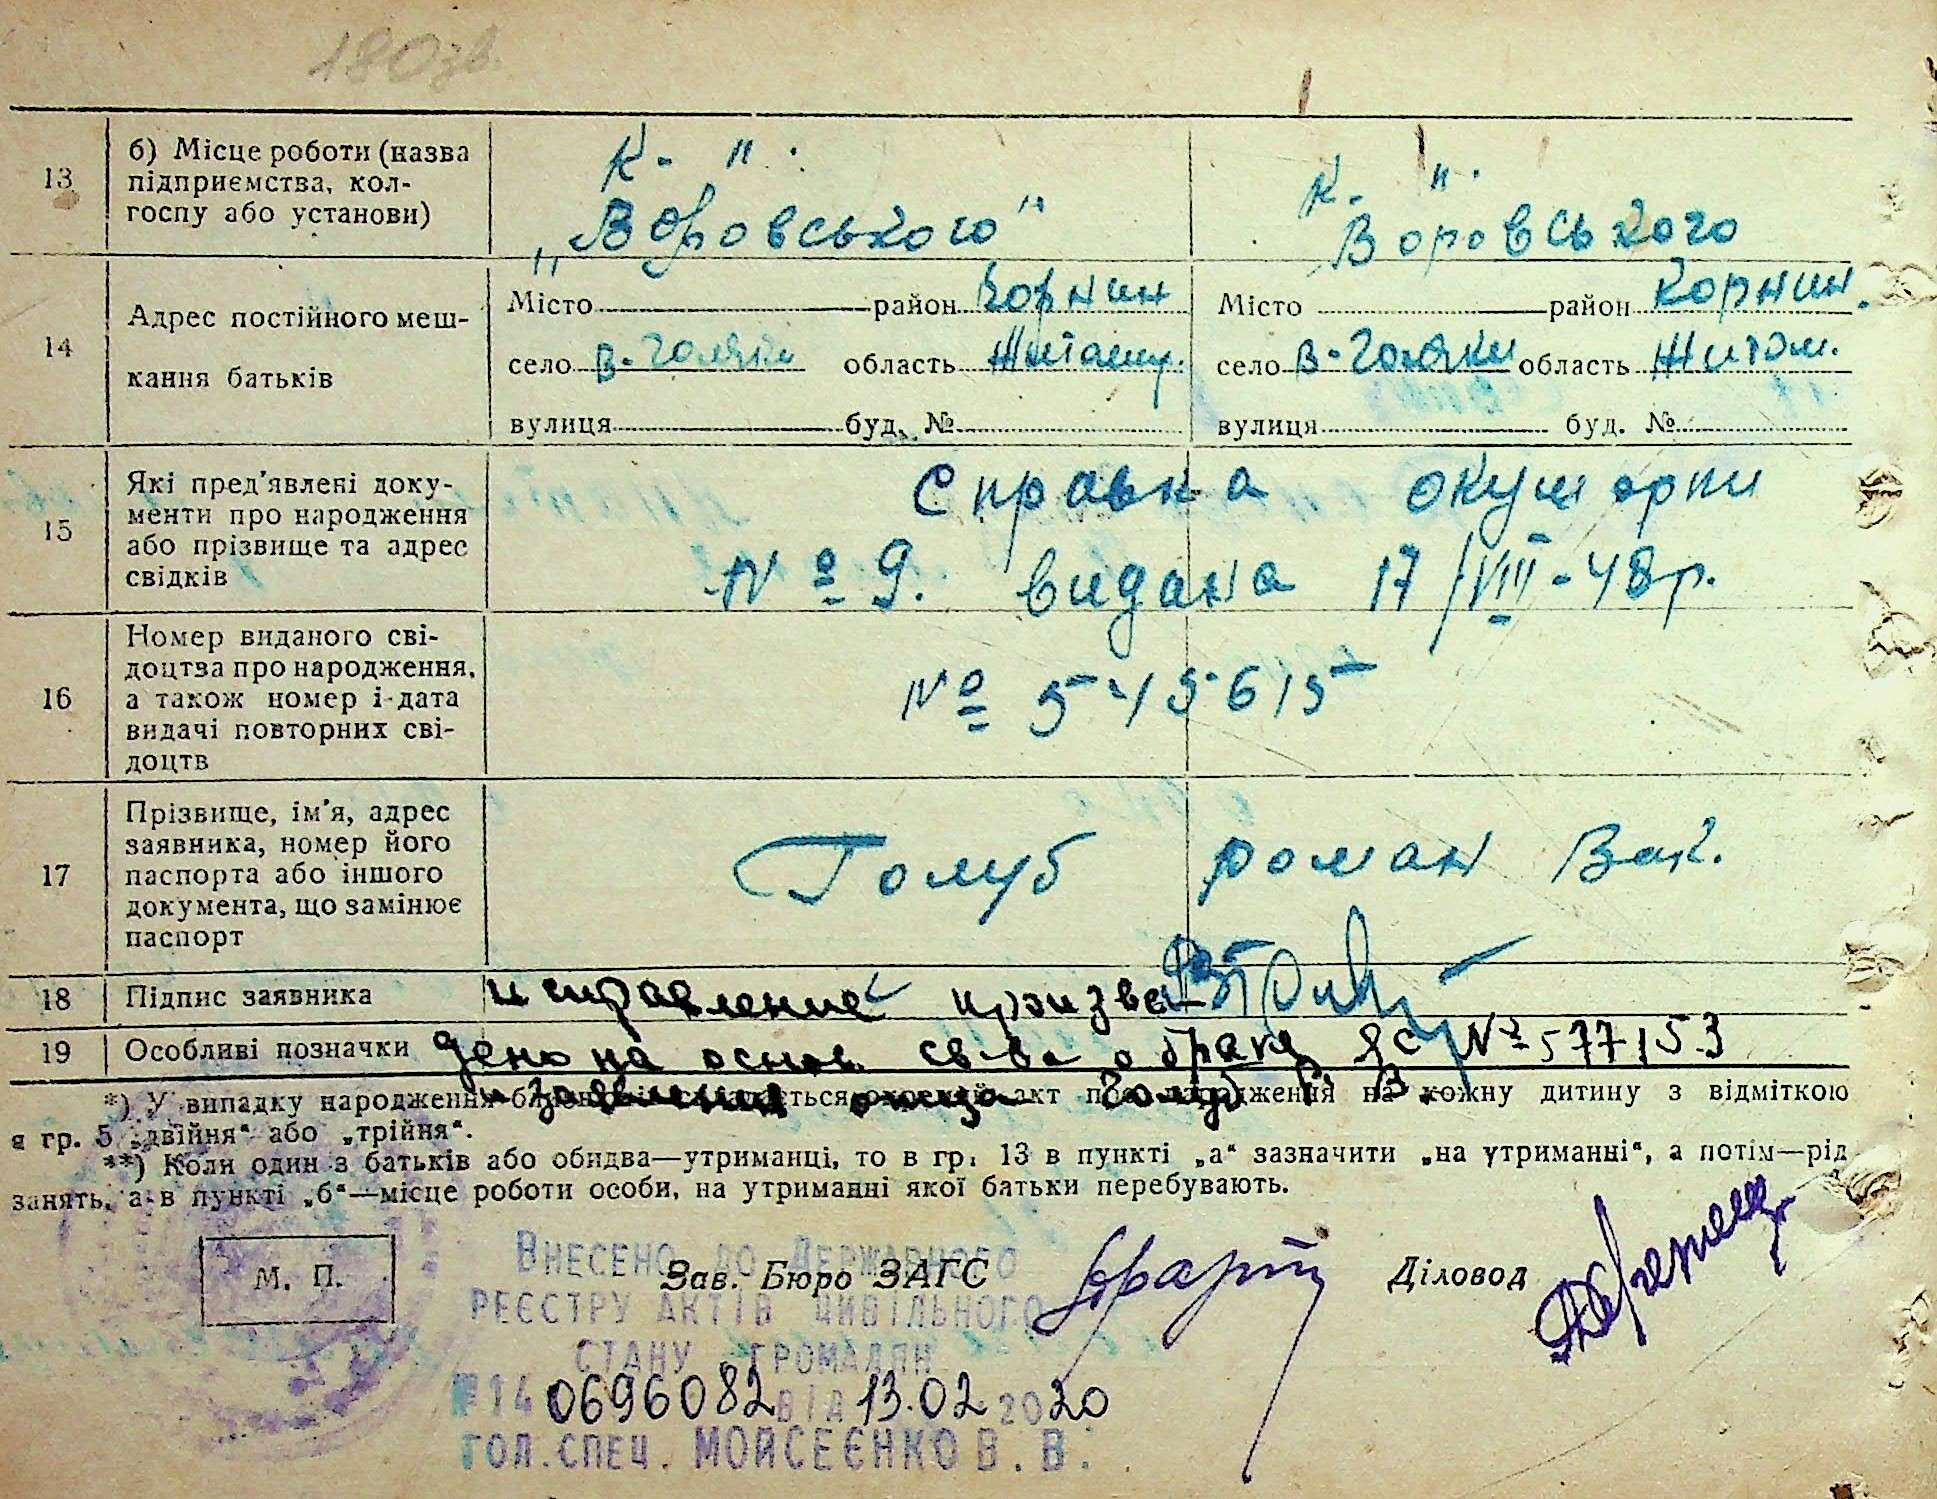 180 зв.
13 б) Місце роботи (назва підприємства, кол-
госпу або установи)
к- " . к- " .
„Воровського" Воровського
14 Адрес постійного меш-
кання батьків
Місто район Корнин Місто район Корнин.
село В-Голяки область Житом. село В-Голяки область Житом.
вулиця буд. № вулиця буд. №
15 Які пред'явлені доку-
менти про народження
або прізвище та адрес
свідків
Справка окушорки
№ 9. видана 17/VIII-48р.
16 Номер виданого сві-
доцтва про народження,
а також номер і дата
видачі повторних сві-
доцтв
№ 545615
17 Прізвище, ім'я, адрес
заявника, номер його
паспорта або іншого
документа, що замінює
паспорт
Голуб Роман Зах.
18 Підпис заявника исправление
19 Особливі позначки дено на основ. св-ва о браке ЯС № 577153
и заявления отца Голуб Р. З.
*) У випадку народження складається окремий акт про народження на кожну дитину з відміткою
в гр. 5 „двійня“ або „трійня“.
**) Коли один з батьків або обидва—утриманці, то в гр. 13 в пункті „а“ зазначити „на утриманні“, а потім—рід
занять, а в пункті „б“—місце роботи особи, на утриманні якої батьки перебувають.
М. П. Зав. Бюро ЗАГС Діловод
Внесено до Державного
реєстру актів цивільного
стану громадян
№14 0696082 від 13.02 2020
гол.спец. Мойсеєнко В. В.